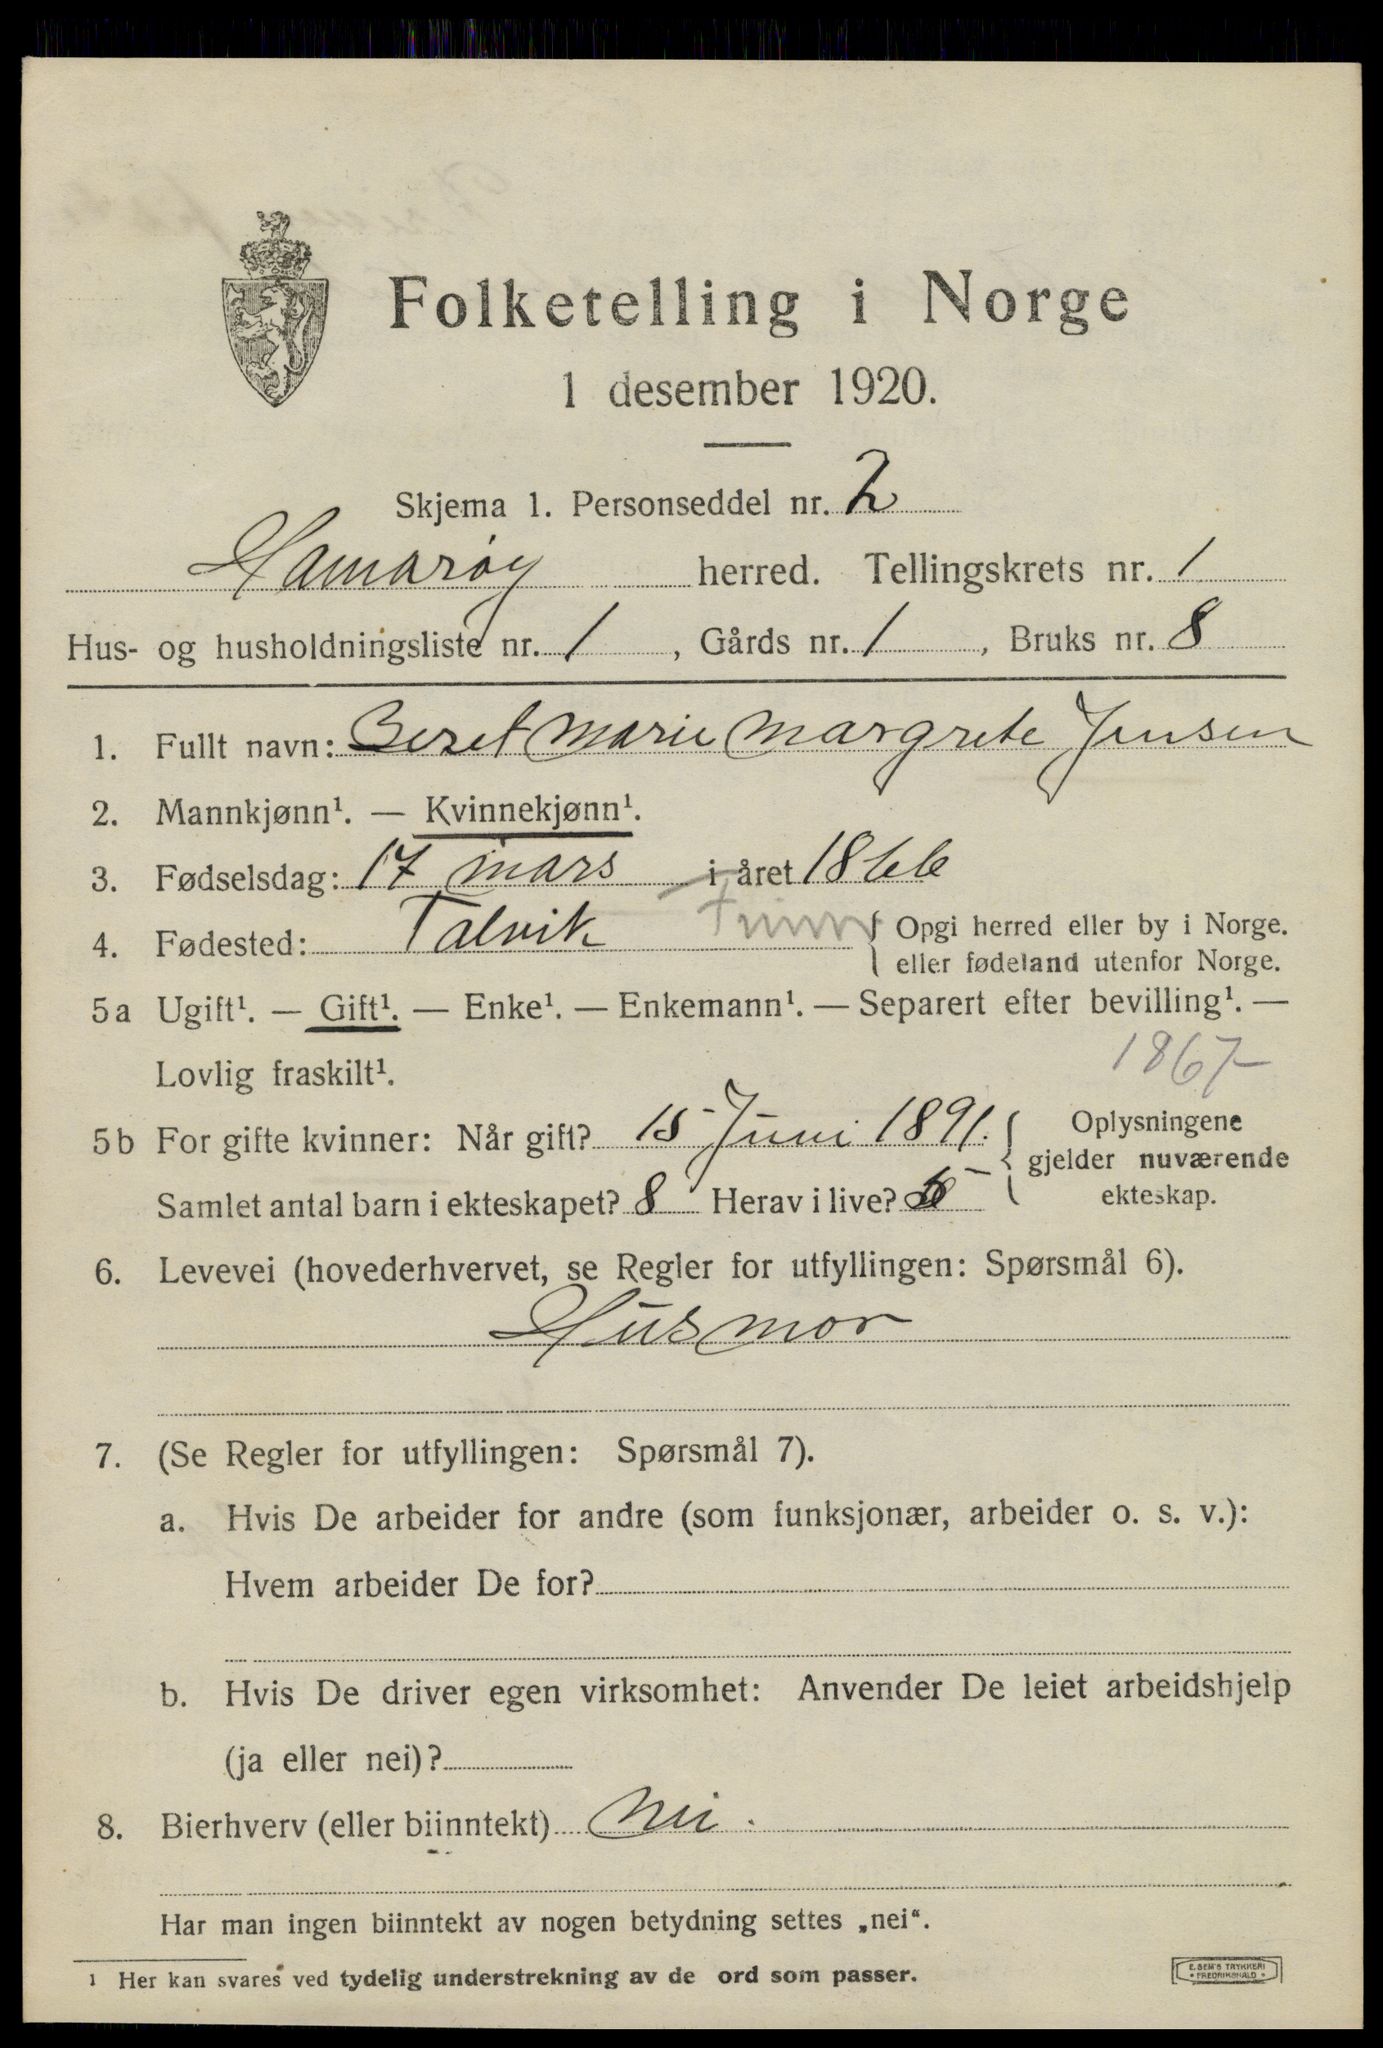 Folketelling i Norge
1 desember 1920.
Skjema 1. Personseddel nr. 2
Hamarøy herred. Tellingskrets nr. 1
Hus- og husholdningsliste nr. 1, Gårds nr. 1, Bruks nr. 8
1. Fullt navn: Beret Marie Margrete Jensen
2. Mannkjønn¹. — Kvinnekjønn¹.
3. Fødselsdag: 17 mars i året 1866
4. Fødested: Talvik { Opgi herred eller by i Norge.
eller fødeland utenfor Norge.
5a Ugift¹. — Gift¹. — Enke¹. — Enkemann¹. — Separert efter bevilling¹. —
Lovlig fraskilt¹. 1867
5b For gifte kvinner: Når gift? 15 Juni 1891. { Oplysningene
gjelder nuværende
Samlet antal barn i ekteskapet? 8 Herav i live? ekteskap.
6. Levevei (hovederhvervet, se Regler for utfyllingen: Spørsmål 6).
Husmor
7. (Se Regler for utfyllingen: Spørsmål 7).
a. Hvis De arbeider for andre (som funksjonær, arbeider o. s. v.):
Hvem arbeider De for?
b. Hvis De driver egen virksomhet: Anvender De leiet arbeidshjelp
(ja eller nei)?
8. Bierhverv (eller biinntekt) Nei.
Har man ingen biinntekt av nogen betydning settes „nei“.
¹ Her kan svares ved tydelig understrekning av de ord som passer.
E. SEM'S TRYKKERI
• FREDRIKSHALD •